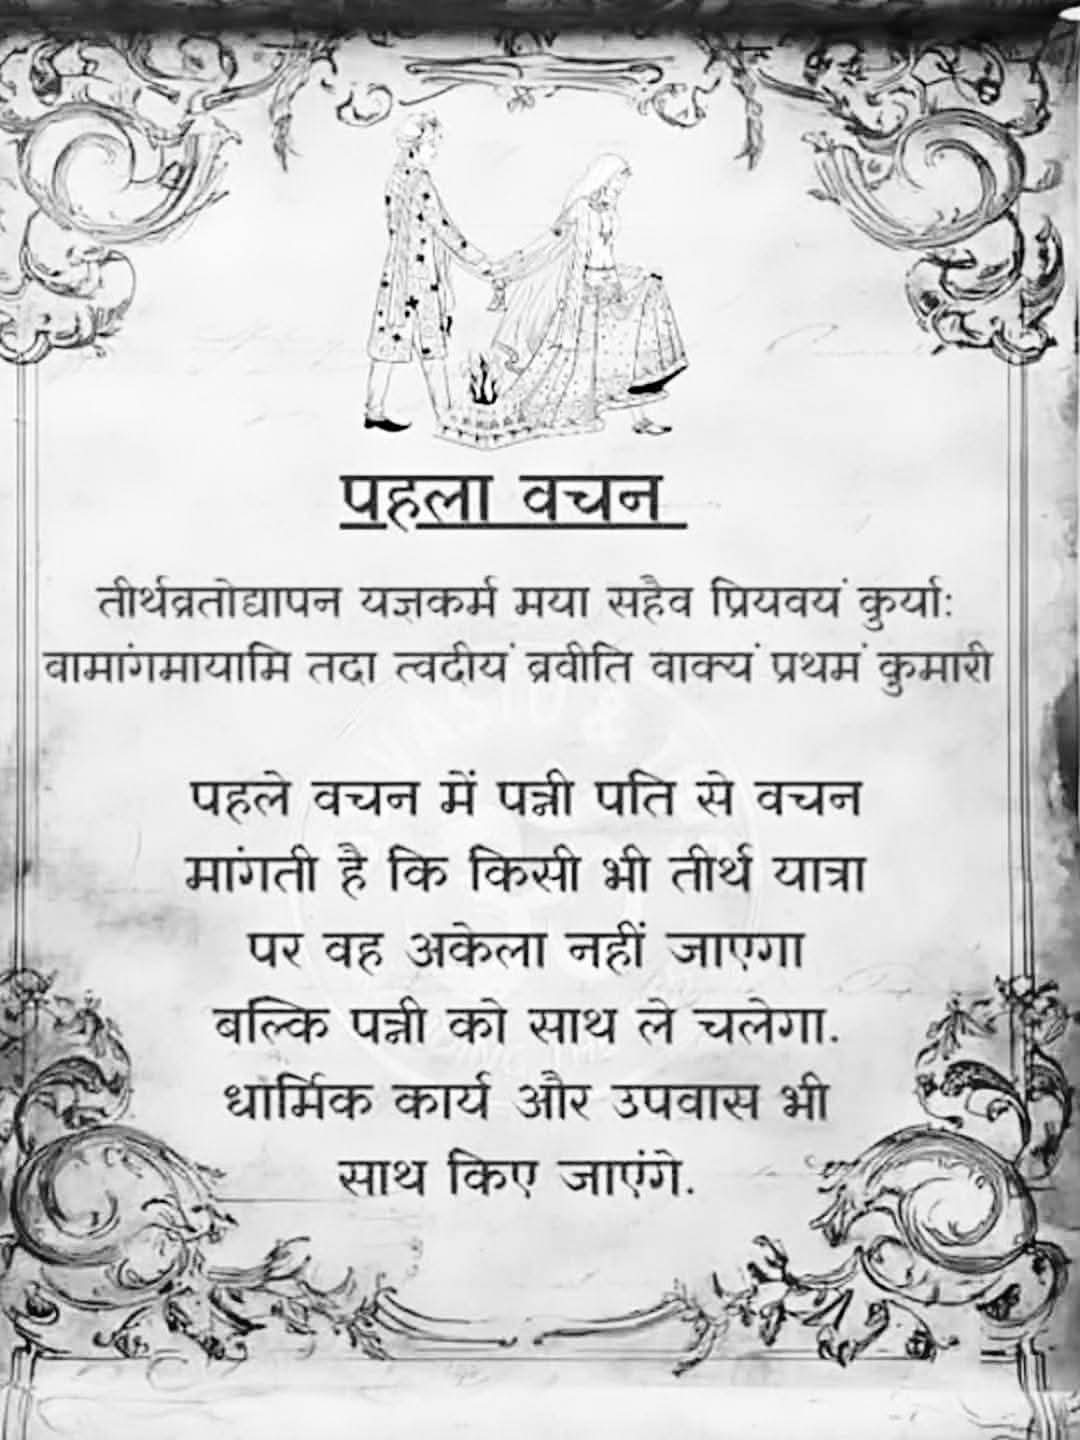 पहला वचन
तीर्थव्रतोद्यापन यज्ञकर्म मया सहैव प्रियवयं कुर्या:
वामांगमायामि तदा त्वदीयं ब्रवीति वाक्यं प्रथमं कुमारी
पहले वचन में पत्नी पति से वचन
मांगती है कि किसी भी तीर्थ यात्रा
पर वह अकेला नहीं जाएगा
बल्कि पत्नी को साथ ले चलेगा.
धार्मिक कार्य और उपवास भी
साथ किए जाएंगे.